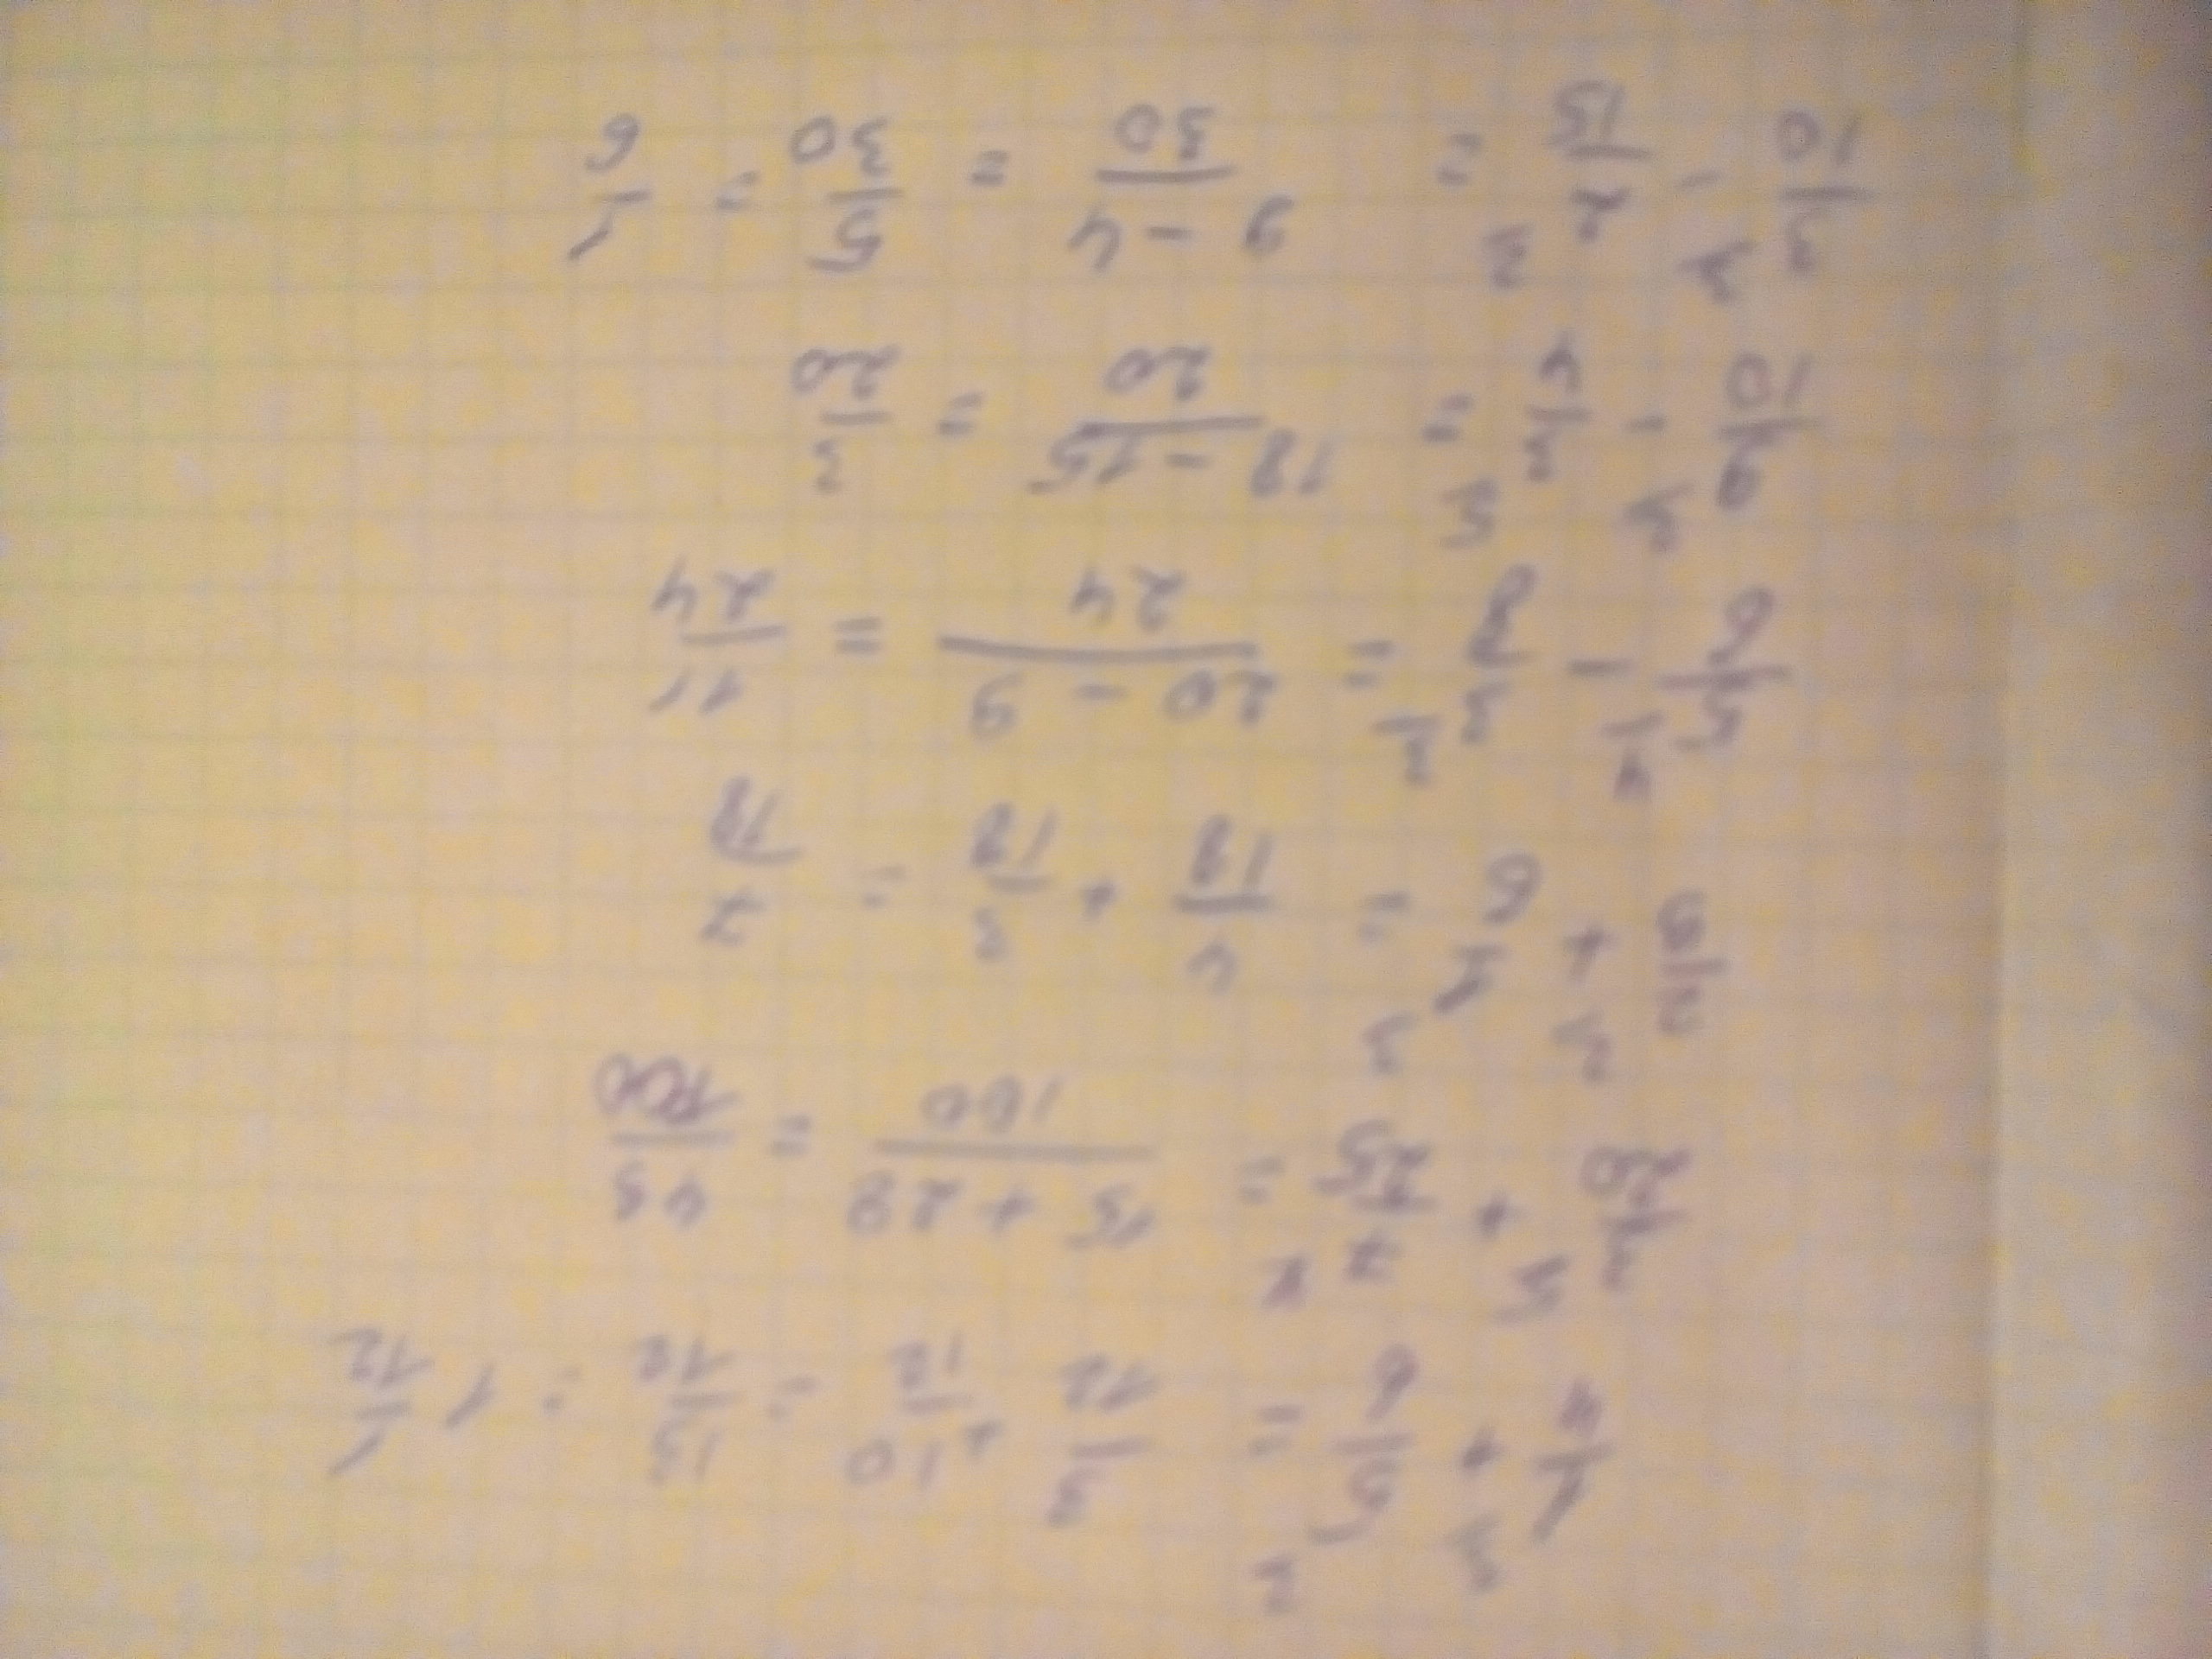 1/4 ³ + 5/6 ² = 3/12 + 10/12 = 13/12 = 1 1/12
3/20 ⁵ + 7/25 ⁴ = 15 + 28/100 = 43/100
2/9 ² + 1/6 ³ = 4/18 + 3/18 = 7/18
5/6 ⁴ - 3/8 ³ = 20 - 9/24 = 11/24
9/10 ² - 3/4 ⁵ = 18 - 15/20 = 3/20
3/10 ³ - 2/15 ² = 9 - 4/30 = 5/30 = 1/6